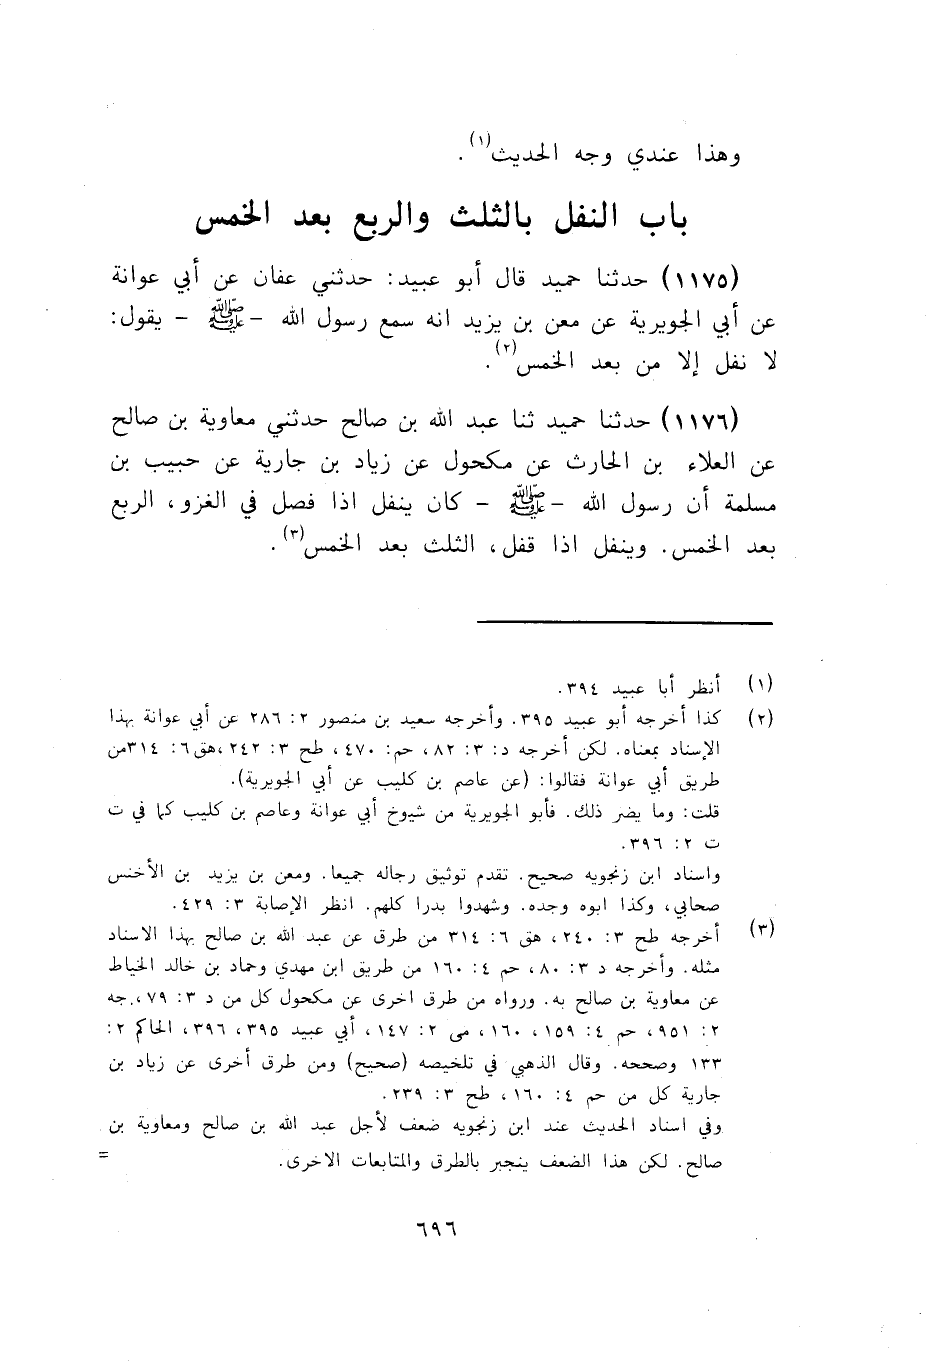 وهذا عندي وجه الحديث(١).
باب النفل بالثلث والربع بعد الخمس
(١١٧٥) حدثنا حميد قال أبو عبيد: حدثني عفان عن أبي عوانة
عن أبي الجويرية عن معن بن يزيد انه سمع رسول الله -ﷺ- يقول:
لا نفل إلا من بعد الخمس(٢).
(١١٧٦) حدثنا حميد ثنا عبد الله بن صالح حدثني معاوية بن صالح
عن العلاء بن الحارث عن مكحول عن زياد بن جارية عن حبيب بن
مسلمة أن رسول الله -ﷺ- كان ينفل اذا فصل في الغزو، الربع
بعد الخمس. وينفل اذا قفل، الثلث بعد الخمس(٣).
(١) أنظر أبا عبيد ٣٩٤.
(٢) كذا أخرجه أبو عبيد ٣٩٥. وأخرجه سعيد بن منصور ٢: ٢٨٦ عن أبي عوانة بهذا
الإسناد بمعناه. لكن أخرجه د: ٣: ٨٢، حم: ٤٧٠، طح ٣: ٢٤٢، هق ٦: ٣١٤ من
طريق أبي عوانة فقالوا: (عن عاصم بن كليب عن أبي الجويرية).
قلت: وما يضر ذلك. فأبو الجويرية من شيوخ أبي عوانة وعاصم بن كليب كما في ت
ت ٢: ٣٩٦.
واسناد ابن زنجويه صحيح. تقدم توثيق رجاله جميعا. ومعن بن يزيد بن الأخنس
صحابي، وكذا ابوه وجده. وشهدوا بدرا كلهم. انظر الإصابة ٣: ٤٢٩.
(٣) أخرجه طح ٣: ٢٤٠، هق ٦: ٣١٤ من طرق عن عبد الله بن صالح بهذا الاسناد
مثله. وأخرجه د ٣: ٨٠، حم ٤: ١٦٠ من طريق ابن مهدي وحماد بن خالد الخياط
عن معاوية بن صالح به. ورواه من طرق اخرى عن مكحول كل من د ٣: ٧٩، جه
٢: ٩٥١، حم ٤: ١٥٩، ١٦٠، مى ٢: ١٤٧، أبي عبيد ٣٩٥، ٣٩٦، الحاكم ٢:
١٣٣ وصححه. وقال الذهبي في تلخيصه (صحيح) ومن طرق أخرى عن زياد بن
جارية كل من حم ٤: ١٦٠، طح ٣: ٢٣٩.
وفي اسناد الحديث عند ابن زنجويه ضعف لأجل عبد الله بن صالح ومعاوية بن
صالح. لكن هذا الضعف ينجبر بالطرق والمتابعات الاخرى. =
٦٩٦